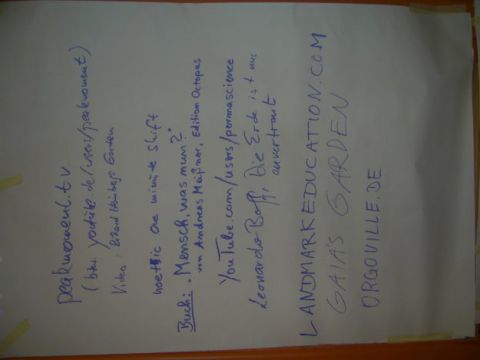 peakmoment.tv
(bzw. youtube.de/user/peakmoment)
Video:
noetic one minute shift
Buch: • Mensch, was nun?
von Andreas Meißner, Edition Octopus
YouTube.com/users/permascience
Leonardo Boff, Die Erde ist uns
anvertraut
LANDMARKEDUCATION.COM
GAIA'S GARDEN
ORGOVILLE.DE